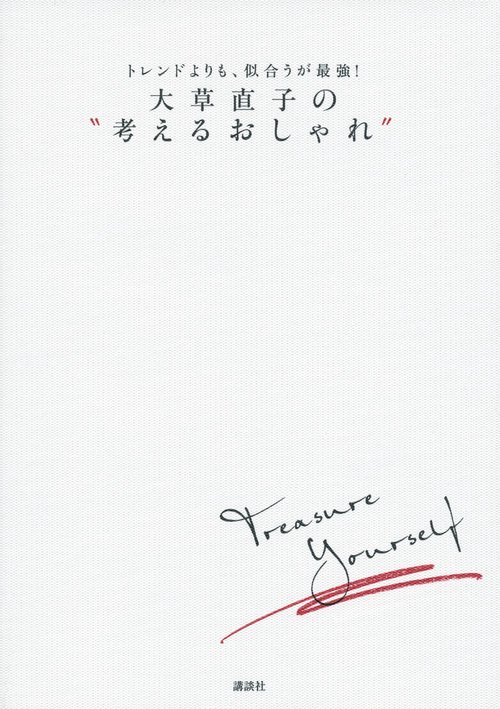 トレンドよりも、似合うが最強!
大草直子の
〝考えるおしゃれ〟
Treasure
Yourself
講談社